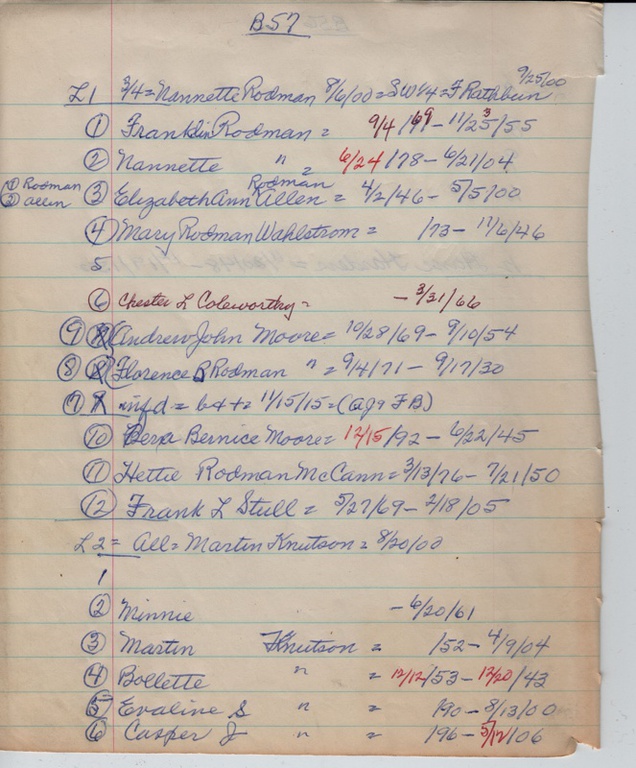 B57
L1 3/4 = Nannette Rodman 8/6/00 = SW 1/4 = F Rathbun 9/25/00
① Franklin Rodman = 9/4/69 - 11/23/55
② Nannette " = 6/24/78 - 6/21/04
① Rodman
② Allen
③ Elizabeth Ann Rodman Allen = 4/2/46 - 5/5/00
④ Mary Rodman Wahlstrom = /73 - 11/6/46
5
⑥ Chester L Coleworthy = - 3/31/66
⑨ Andrew John Moore = 10/28/69 - 9/10/54
⑧ Florence Rodman " = 9/4/71 - 9/17/30
⑦ infd = b4t = 11/15/15 = (of FB)
⑩ Bernice Moore = 12/15/92 - 6/22/45
⑪ Hettie Rodman McCann = 3/13/76 - 7/21/50
⑫ Frank L Stull = 5/27/69 - 2/18/05
L2 = All = Martin Knutson = 8/20/00
1
② Minnie - 6/20/61
③ Martin Knutson = /52 - 4/9/04
④ Bollette " = 12/12/53 - 12/20/43
⑤ Evaline S " = /90 - 8/13/00
⑥ Casper J " = /96 - 5/12/06